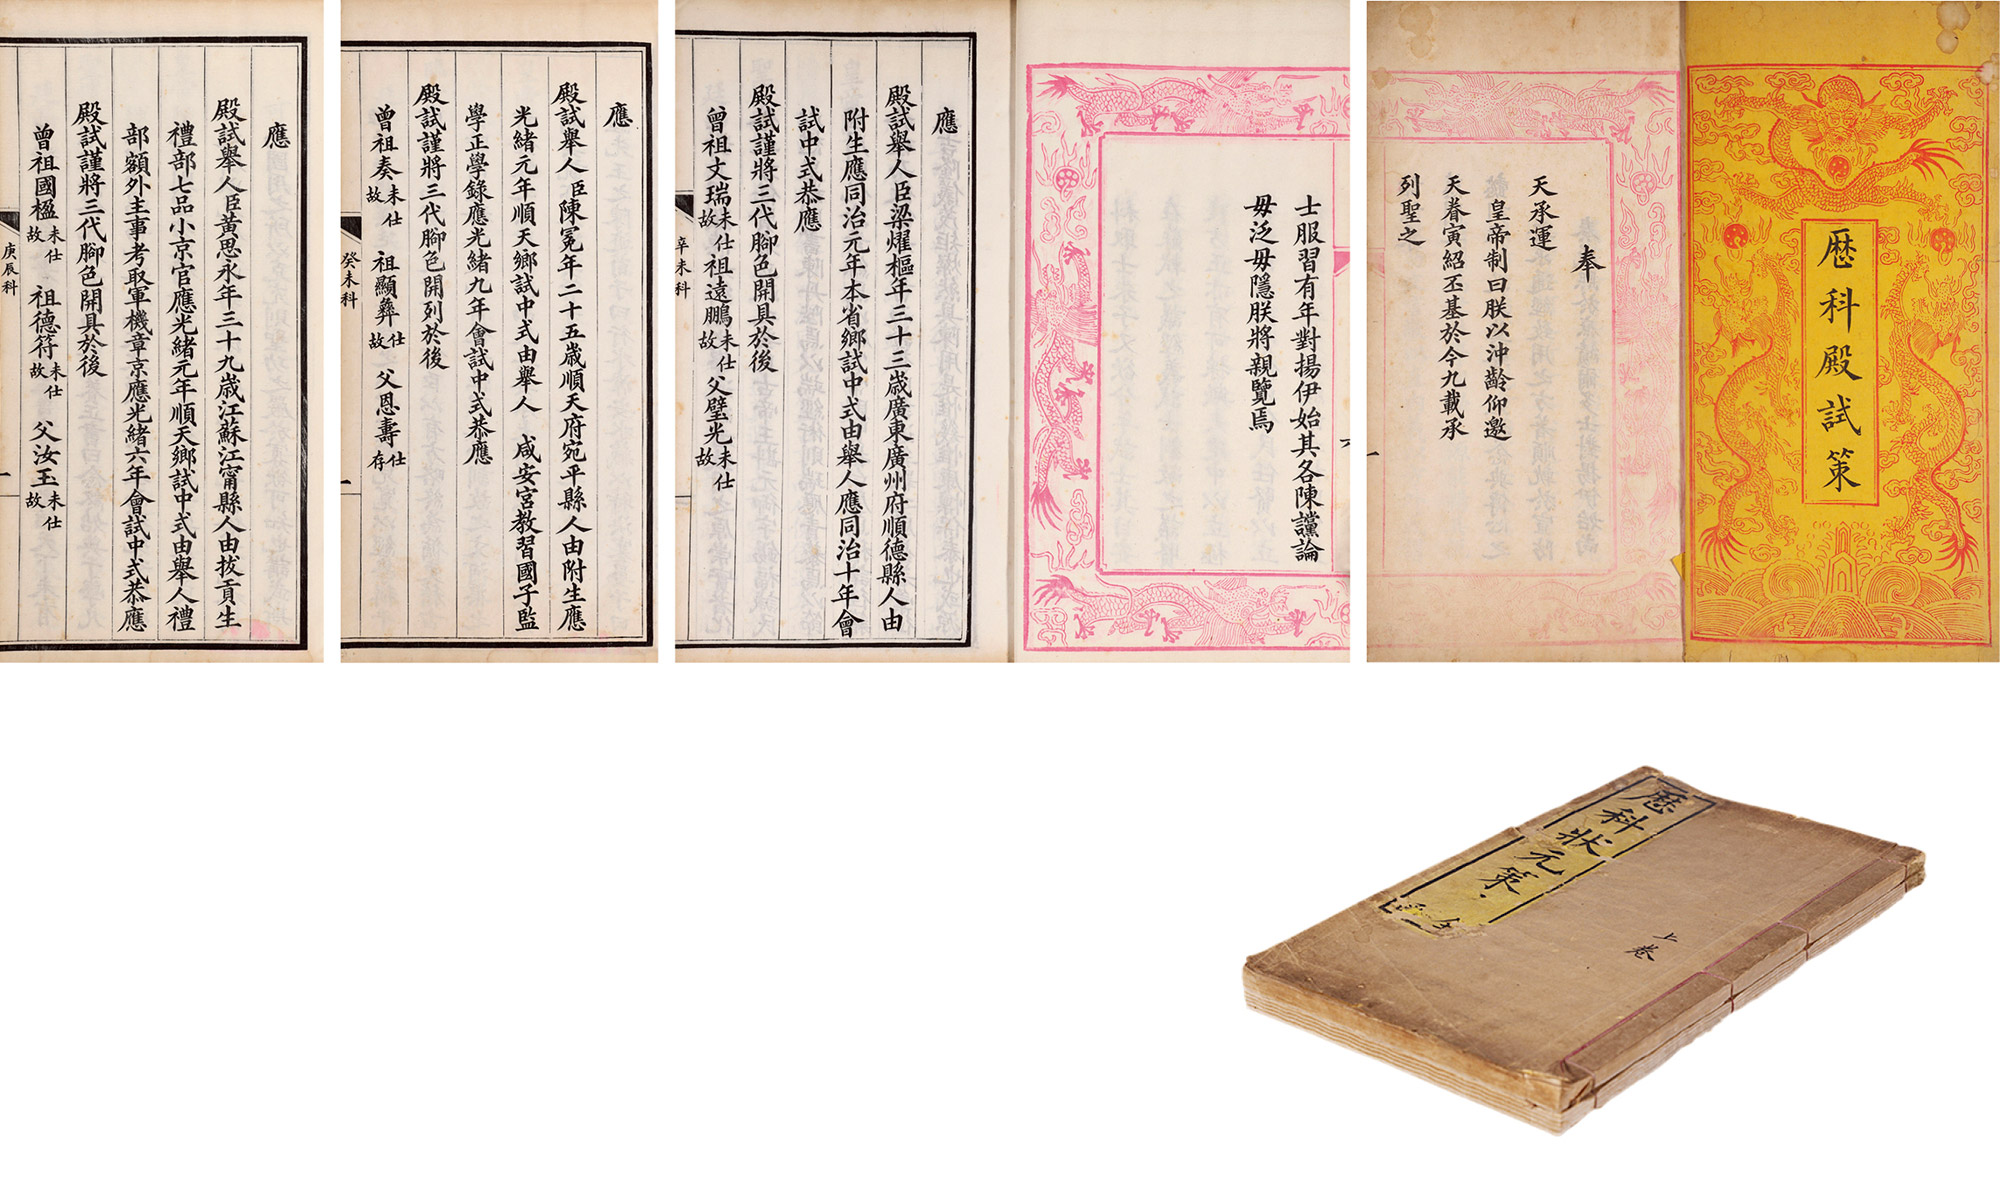 歷科殿試策
奉
天承運
皇帝制曰朕以沖齡仰邀
天眷寅紹丕基於今九載承
列聖之
士服習有年對揚伊始其各陳讜論
毋泛毋隱朕將親覽焉
應
殿試舉人臣梁燿樞年三十三歲廣東廣州府順德縣人由
附生應同治元年本省鄉試中式由舉人應同治十年會
試中式恭應
殿試謹將三代腳色開具於後
曾祖文瑞未仕故 祖遠鵬未仕故 父璧光未仕故
辛未科
應
殿試舉人臣陳冕年二十五歲順天府宛平縣人由附生應
光緒元年順天鄉試中式由舉人 咸安宮教習國子監
學正學錄應光緒九年會試中式恭應
殿試謹將三代腳色開列於後
曾祖奏未仕故 祖顯彝仕故 父恩壽仕存
癸未科
一
應
殿試舉人臣黃思永年三十九歲江蘇江甯縣人由拔貢生
禮部七品小京官應光緒元年順天鄉試中式由舉人禮
部額外主事考取軍機章京應光緒六年會試中式恭應
殿試謹將三代腳色開具於後
曾祖國楹未仕故 祖德符未仕故 父汝玉未仕故
庚辰科
一
歷科狀元策
上卷